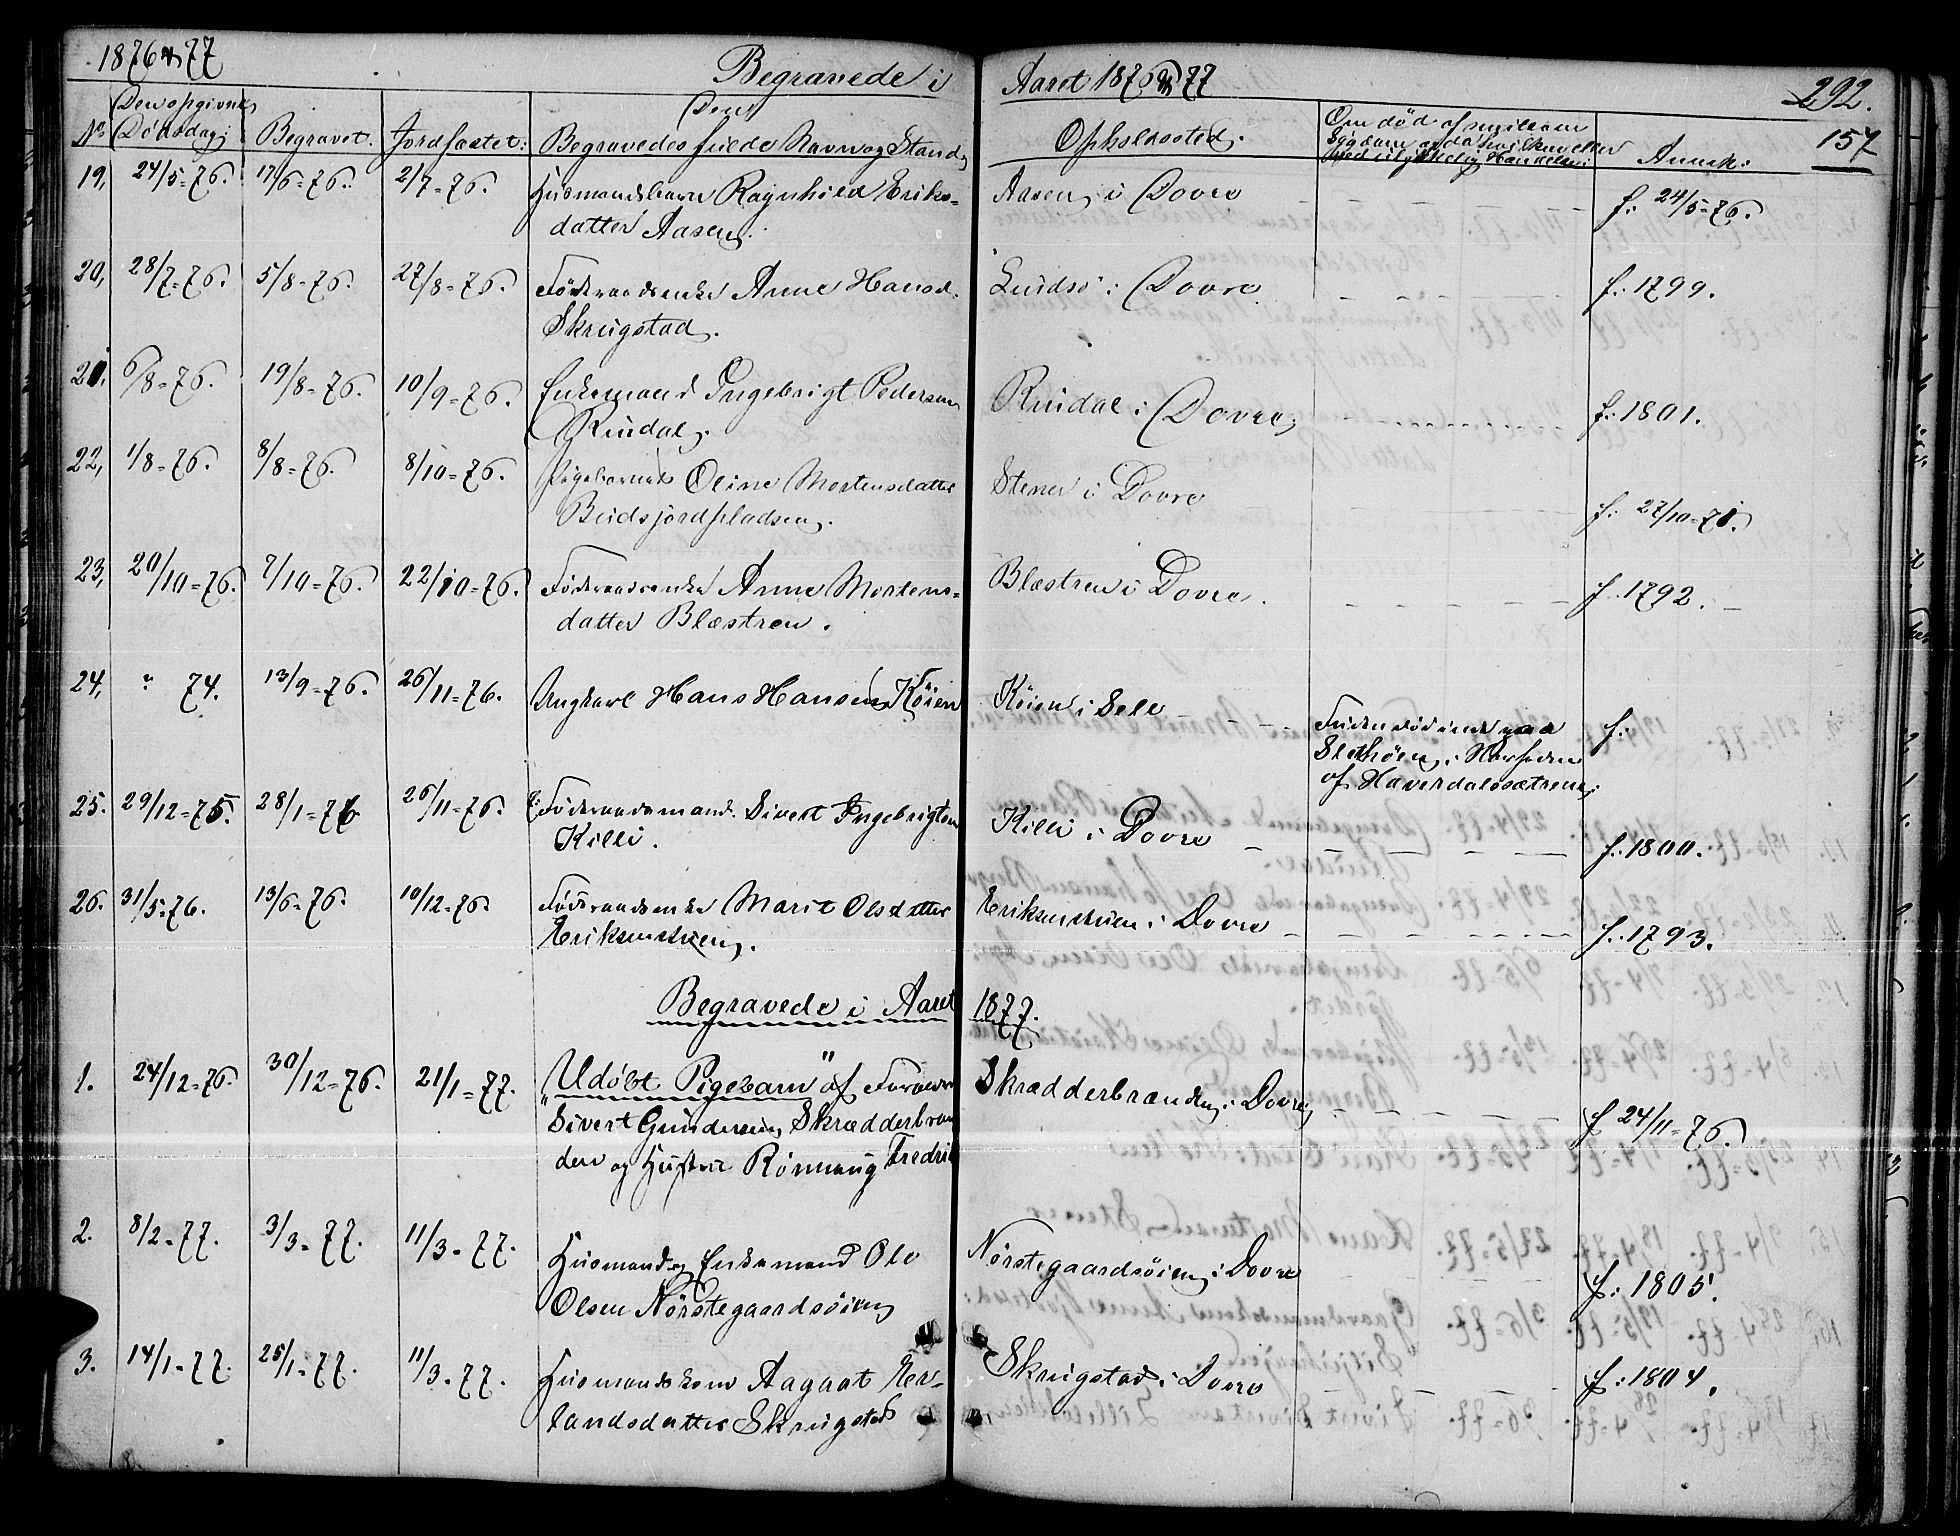 1876 & 77
Begravede i Aaret 1876 & 77
292.
157
No
Den opgivne Dödsdag:
Begravet.
Jordfæstet:
Den Begravedes fulde Navn og Stand,
Opholdssted.
Om død af smitsom Sygdom og da hvilken eller ved ulykkelig Hændelse:
Anmk:
19, 24/5=76. 17/6=76. 2/7=76. Husmandsbarn Ragnhild Eriks-
datter Aasen.
Aasen i Dovre f: 24/5=76.
20, 28/7=76. 5/8=76. 27/8=76. Föderaadsenke Anne Hansd.
Skrugstad.
i Dovre f: 1799.
21, 6/8=76. 19/8=76. 10/9=76. Enkemand Ingebrigt Pedersen
Rindal.
Rindal i Dovre, f: 1801.
22, 1/8=76. 8/8=76. 8/10=76. Pigebarnet Oline Mortensdatter
Budsjordpladsen.
Stener i Dovre f: 27/10=71.
23, 20/10=76. 7/10=76. 22/10=76. Föderaadsenke Anne Mortens-
datter Blæstren.
Blæstren i Dovre. f: 1792.
24, " 74. 13/9=76. 26/11=76. Ungkarl Hans Hansen Köien
Köien i Sell
Funden död inde paa
Sletthöen i Nærheden
af Haverdalssætrene.
f:
25. 29/12=75. 28/1=76 26/11=76. Föderaadsmand Sivert Ingebrigtsen
Killi.
Killi i Dovre f: 1800.
26. 31/5=76. 13/6=76. 10/12=76. Föderaadsenke Marit Olsdatter
Eriksenstuen.
Eriksenstuen i Dovre f: 1793.
Begravede i Aaret 1877.
1. 24/12=76. 30/12=76. 21/1=77. "Udöbt Pigebarn" af Foræld
Sivert Gundersen Skrædderbræn
den og Hustru Rönnaug Fredrik
Skrædderbrænden i Dovre, f 24/11=76.
2. 8/2=77. 3/3=77. 11/3=77. Husmand og Enkemand Ole
Olsen Nörstegaardsöien
Nörstegaardsöien i Dovre f: 1805.
3. 14/1=77. 25/1=77. 11/3=77. Husmandskone Aagaat Er-
landsdatter Skrugstad
Skrugstad i Dovre f: 1804.